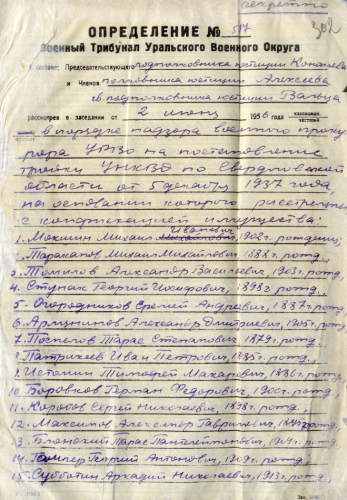 секретно
302
ОПРЕДЕЛЕНИЕ № 517
Военный Трибунал Уральского Военного Округа
в составе: Председательствующего подполковника юстиции
и Членов подполковника юстиции Алексеева
и подполковника юстиции
рассмотрев в заседании от 2 июня 1956 года
в порядке надзора военного проку
рора УрВО на постановление
тройки УНКВД по Свердловской
области от 5 декабря 1937 года
на основании которого расстреляны
с конфискацией имущества:
1. Мокшин Михаил Иванович, 1902 г. рождения;
2. Тараканов Михаил Михайлович, 1888 г. рожд.,
3. Александр Васильевич, 1903 г. рожд.
4. Ступак Георгий Иосифович, 1898 г. рожд.,
5. Огородников Сергей Андреевич, 1887 г. рожд.
6. Александр Дмитриевич, 1905 г. рожд.,
7. Поспелов Тарас Степанович, 1879 г. рожд.,
8. Патрикеев Иван Петрович, 1885 г. рожд.,
9. Истомин Тимофей Макарович, 1886 г. рожд.,
10. Боровков Герман Федорович, 1900 г. рожд.,
11. Сергей Николаевич, 1898 г. рожд.,
12. Максимов Александр Гаврилович, рожд.
13. Блонский Тарас Пантелеймонович, 1904 г. рожд.,
14. Георгий Антонович, 1909 г. рожд.,
15. Субботин Аркадий Николаевич, 1913 г. рожд.,